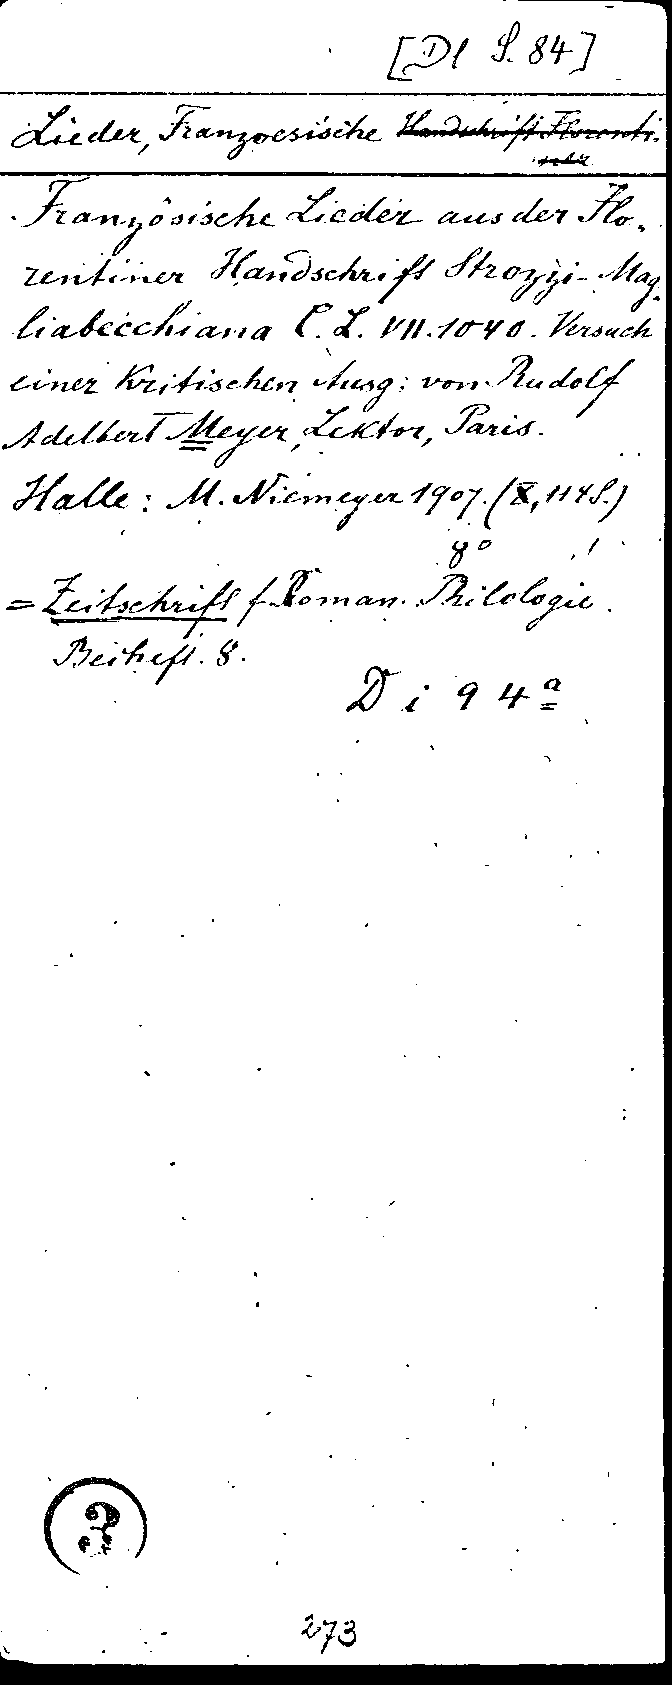 [Dl S. 84]
Lieder, Franzoesische Handschrift Florenti-
scher
Französische Lieder aus der Flo-
rentiner Handschrift Strozzi-Mag-
liabecchiana C. L. VII. 1040. Versuch
einer Kritischen Ausg: von Rudolf
Adelbert Meyer, Lektor, Paris.
Halle: M. Niemeyer 1907. (X, 114 S.)
8°
= Zeitschrift f. Roman. Philologie.
Beiheft. 8.
Di 94a
273